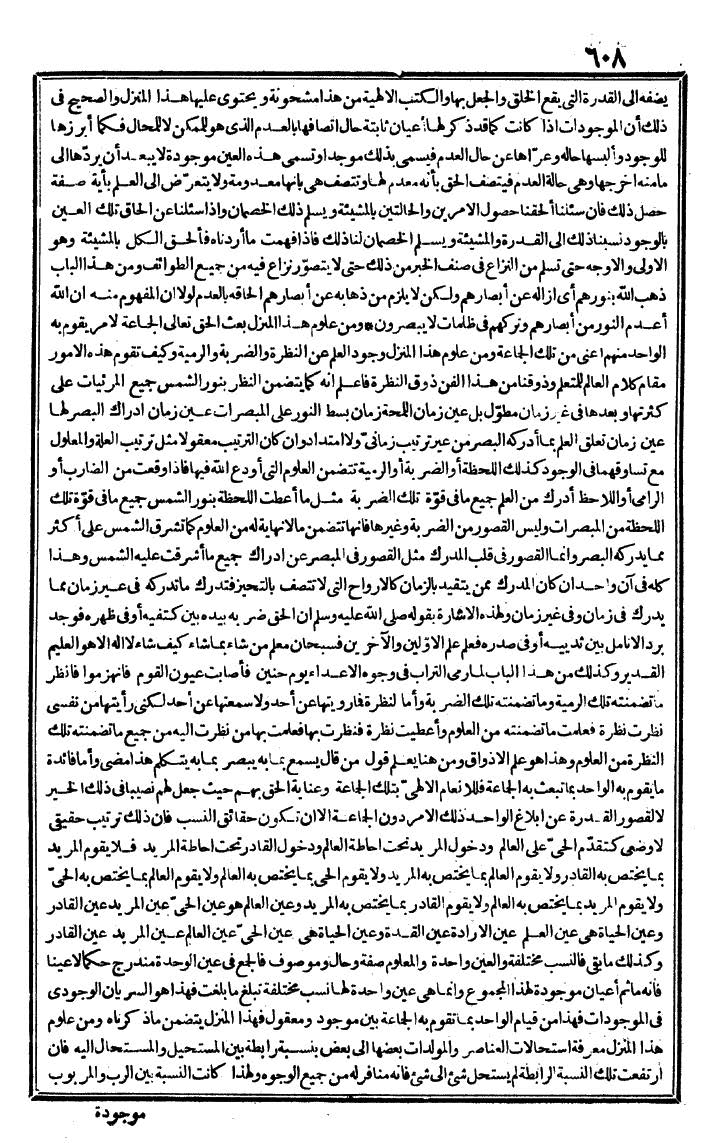 ٦٠٨
يضفه الى القدرة التى يقع الخلق والجعل بها والكتب الالهية من هذا مشحونة ويحتوى عليها هذا المنزل والصحيح فى
ذلك أن الموجودات اذا كانت كما قد ذكر لها أعيان ثابتة حال اتصافها بالعدم الذى هو للممكن لا للمحال فكما أبرزها
للوجود وألبسها حاله وعرّاها عن حال العدم فيسمى بذلك موجدا وتسمى هذه العين موجودة لا يبعد أن يردّها الى
مامنه اخرجها وهى حالة العدم فيتصف الحق بأنه معدم لها وتتصف هى بانها معدومة ولا يتعرّض الى العلم بأية صفة
حصل ذلك فان سئلنا ألحقنا حصول الامرين والحالتين بالمشيئة ويسلم ذلك الخصمان واذا سئلنا عن الحاق تلك العين
بالوجود نسبنا ذلك الى القدرة والمشيئة ويسلم الخصمان لنا ذلك فاذا فهمت ما أردناه فألحق الكل بالمشيئة وهو
الاولى والاوجه حتى تسلم من النزاع فى صنف الخبر من ذلك حتى لا يتصوّر نزاع فيه من جميع الطوائف ومن هذا الباب
ذهب الله بنورهم أى ازاله عن أبصارهم ولكن لا يلزم من ذهابه عن أبصارهم الحاقه بالعدم لولا ان المفهوم منه ان الله
أعدم النور من أبصارهم وتركهم فى ظلمات لا يبصرون * ومن علوم هذا المنزل بعث الحق تعالى الجاعة لامر يقوم به
الواحد منهم اعنى من تلك الجاعة ومن علوم هذا المنزل وجود العلم عن النظرة والضربة والرمية وكيف تقوم هذه الامور
مقام كلام العالم للمتعلم وذوقنا من هذا الفن ذوق النظرة فاعلم انه كما يتضمن النظر بنور الشمس جميع المرئيات على
كثرتها وبعدها فى غير زمان مطوّل بل عين زمان اللمحة زمان بسط النور على المبصرات عين زمان ادراك البصر لها
عين زمان تعلق العلم بما أدركه البصر من غير ترتيب زمانىّ ولا امتداد وان كان الترتيب معقولا مثل ترتيب العلة والمعلول
مع تساوقهما فى الوجود كذلك اللحظة أو الضربة أو الرمية تتضمن العلوم التى أودع الله فيها فاذا وقعت من الضارب أو
الرامى أو اللاحظ أدرك من العلم جميع ما فى قوّة تلك الضربة مثل ما أعطت اللحظة بنور الشمس جميع ما فى قوّة تلك
اللحظة من المبصرات وليس القصور من الضربة وغيرها فانها تتضمن مالا نهاية له من العلوم كما تشرق الشمس على أكثر
مما يدركه البصر وانما القصور فى قلب المدرك مثل القصور فى المبصر عن ادراك جميع ما أشرقت عليه الشمس وهذا
كله فى آن واحد ان كان المدرك ممن يتقيد بالزمان كالارواح التى لا تتصف بالتحيز فتدرك ما تدركه فى غير زمان مما
يدرك فى زمان وفى غير زمان ولهذه الاشارة بقوله صلى الله عليه وسلم ان الحق ضربه بيده بين كتفيه أو فى ظهره فوجد
برد الانامل بين ثدييه أو فى صدره فعلم علم الاوّلين والآخرين فسبحان معلم من شاء بما شاء كيف شاء لا اله الا هو العليم
القدير وكذلك من هذا الباب لما رمى التراب فى وجوه الاعداء يوم حنين فأصابت عيون القوم فانهزموا فانظر
ما تضمنته تلك الرمية وما تضمنته تلك الضربة وأما لنظرة فما رويتها عن أحد ولا سمعتها عن أحد لكنى رأيتها من نفسى
نظرت نظرة فعلمت ما تضمنته من العلوم وأعطيت نظرة فنظرت بها فعلمت بها من نظرت اليه من جميع ما تضمنته تلك
النظرة من العلوم وهذا هو علم الاذواق ومن هنا يعلم قول من قال يسمع بما به يبصر بما به يتكلم هذا مضى وأما فائدة
ما يقوم به الواحد بما تبعث به الجاعة فللانعام الالهىّ بتلك الجاعة وعناية الحق بهم حيث جعل لهم نصيبا فى ذلك الخير
لا لقصور القدرة عن ابلاغ الواحد ذلك الامر دون الجاعة الا ان تكون حقائق النسب فان ذلك ترتيب حقيقى
لا وضعى كتقدّم الحىّ على العالم ودخول المريد تحت احاطة العالم ودخول القادر تحت احاطة المريد فلا يقوم المريد
بما يختص به القادر ولا يقوم العالم بما يختص به المريد ولا يقوم الحى بما يختص به العالم ولا يقوم العالم بما يختص به الحىّ
ولا يقوم المريد بما يختص به العالم ولا يقوم القادر بما يختص به المريد وعين العالم هو عين الحىّ عين المريد عين القادر
وعين الحياة هى عين العلم عين الارادة عين القدة وعين الحياة هى عين الحىّ عين العالم عين المريد عين القادر
وكذلك ما بقى فالنسب مختلفة والعين واحدة والمعلوم صفة وحال وموصوف فالجع فى عين الوحدة مندرج حكما لا عينا
فانه ما ثم أعيان موجودة لهذا المجموع وانما هى عين واحدة لها نسب مختلفة تبلغ ما بلغت فهذا هو السريان الوجودى
فى الموجودات فهذا من قيام الواحد بما تقوم به الجاعة بين موجود ومعقول فهذا المنزل يتضمن ماذكرناه ومن علوم
هذا المنزل معرفة استحالات العناصر والمولدات بعضها الى بعض بنسبة رابطة بين المستحيل والمستحال اليه فان
ارتفعت تلك النسبة الرابطة لم يستحل شئ الى شئ فانه منافر له من جميع الوجوه ولهذا كانت النسبة بين الرب والمربوب
موجودة